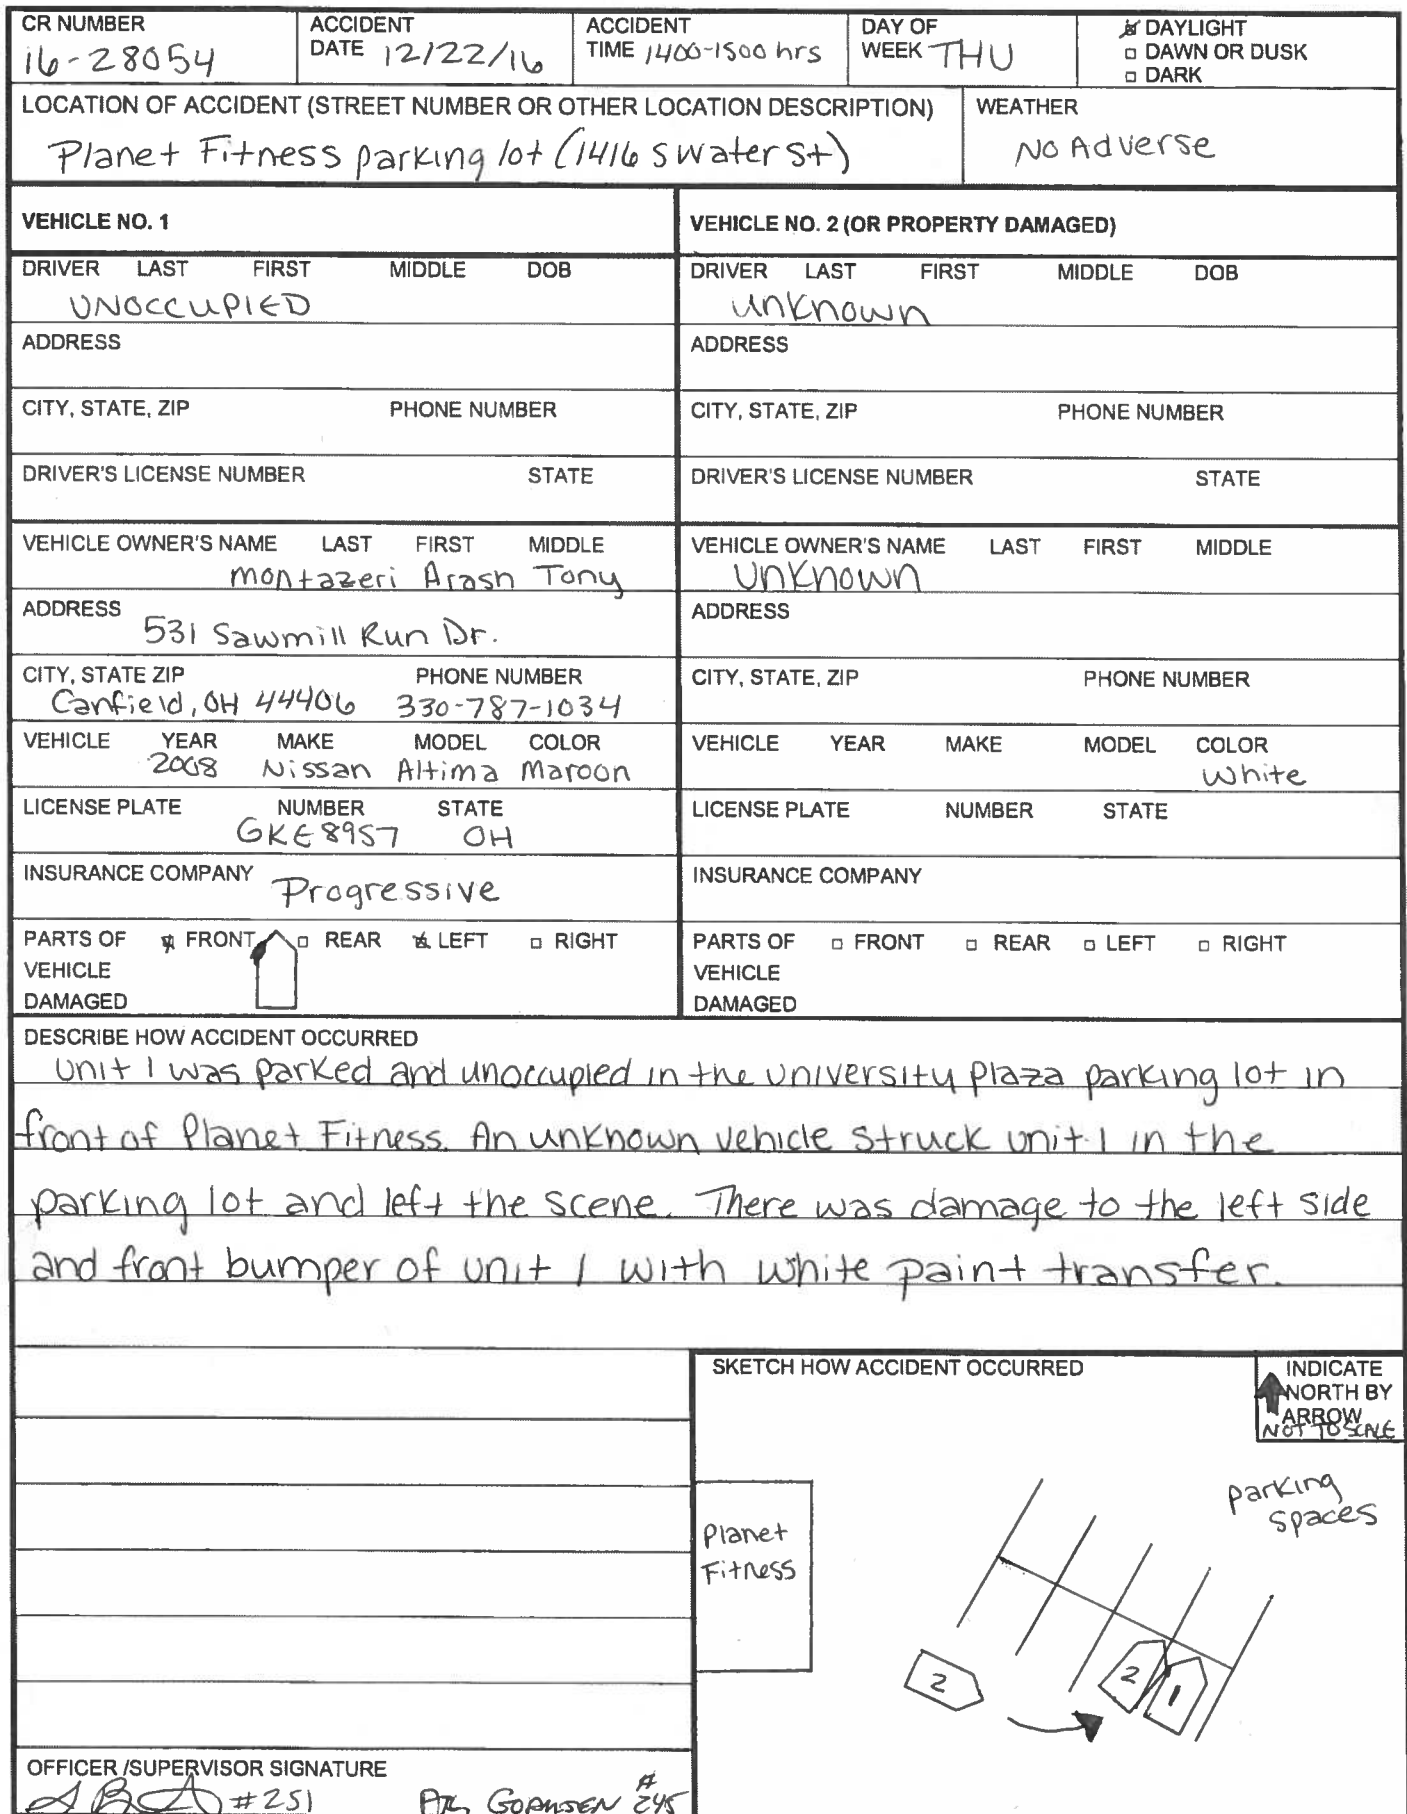 CR NUMBER
16-28054
ACCIDENT
DATE 12/22/16
ACCIDENT
TIME 1400-1500 hrs
DAY OF
WEEK THU
DAYLIGHT
DAWN OR DUSK
DARK
LOCATION OF ACCIDENT (STREET NUMBER OR OTHER LOCATION DESCRIPTION)
Planet Fitness parking lot (1416 S Water St)
WEATHER
No Adverse
VEHICLE NO. 1
DRIVER LAST FIRST MIDDLE DOB
UNOCCUPIED
ADDRESS
CITY, STATE, ZIP PHONE NUMBER
DRIVER'S LICENSE NUMBER STATE
VEHICLE OWNER'S NAME LAST FIRST MIDDLE
Montazeri Arash Tony
ADDRESS
531 Sawmill Run Dr.
CITY, STATE ZIP PHONE NUMBER
Canfield, OH 44406 330-787-1034
VEHICLE YEAR MAKE MODEL COLOR
2008 Nissan Altima Maroon
LICENSE PLATE NUMBER STATE
GKE8957 OH
INSURANCE COMPANY Progressive
PARTS OF FRONT REAR LEFT RIGHT
VEHICLE
DAMAGED
VEHICLE NO. 2 (OR PROPERTY DAMAGED)
DRIVER LAST FIRST MIDDLE DOB
Unknown
ADDRESS
CITY, STATE, ZIP PHONE NUMBER
DRIVER'S LICENSE NUMBER STATE
VEHICLE OWNER'S NAME LAST FIRST MIDDLE
Unknown
ADDRESS
CITY, STATE, ZIP PHONE NUMBER
VEHICLE YEAR MAKE MODEL COLOR
White
LICENSE PLATE NUMBER STATE
INSURANCE COMPANY
PARTS OF FRONT REAR LEFT RIGHT
VEHICLE
DAMAGED
DESCRIBE HOW ACCIDENT OCCURRED
Unit 1 was parked and unoccupied in the University Plaza parking lot in
front of Planet Fitness. An unknown vehicle struck unit 1 in the
parking lot and left the scene. There was damage to the left side
and front bumper of unit 1 with white paint transfer.
SKETCH HOW ACCIDENT OCCURRED
INDICATE
NORTH BY
ARROW
NOT TO SCALE
parking
spaces
Planet
Fitness
2
2
1
OFFICER /SUPERVISOR SIGNATURE
#251
#245